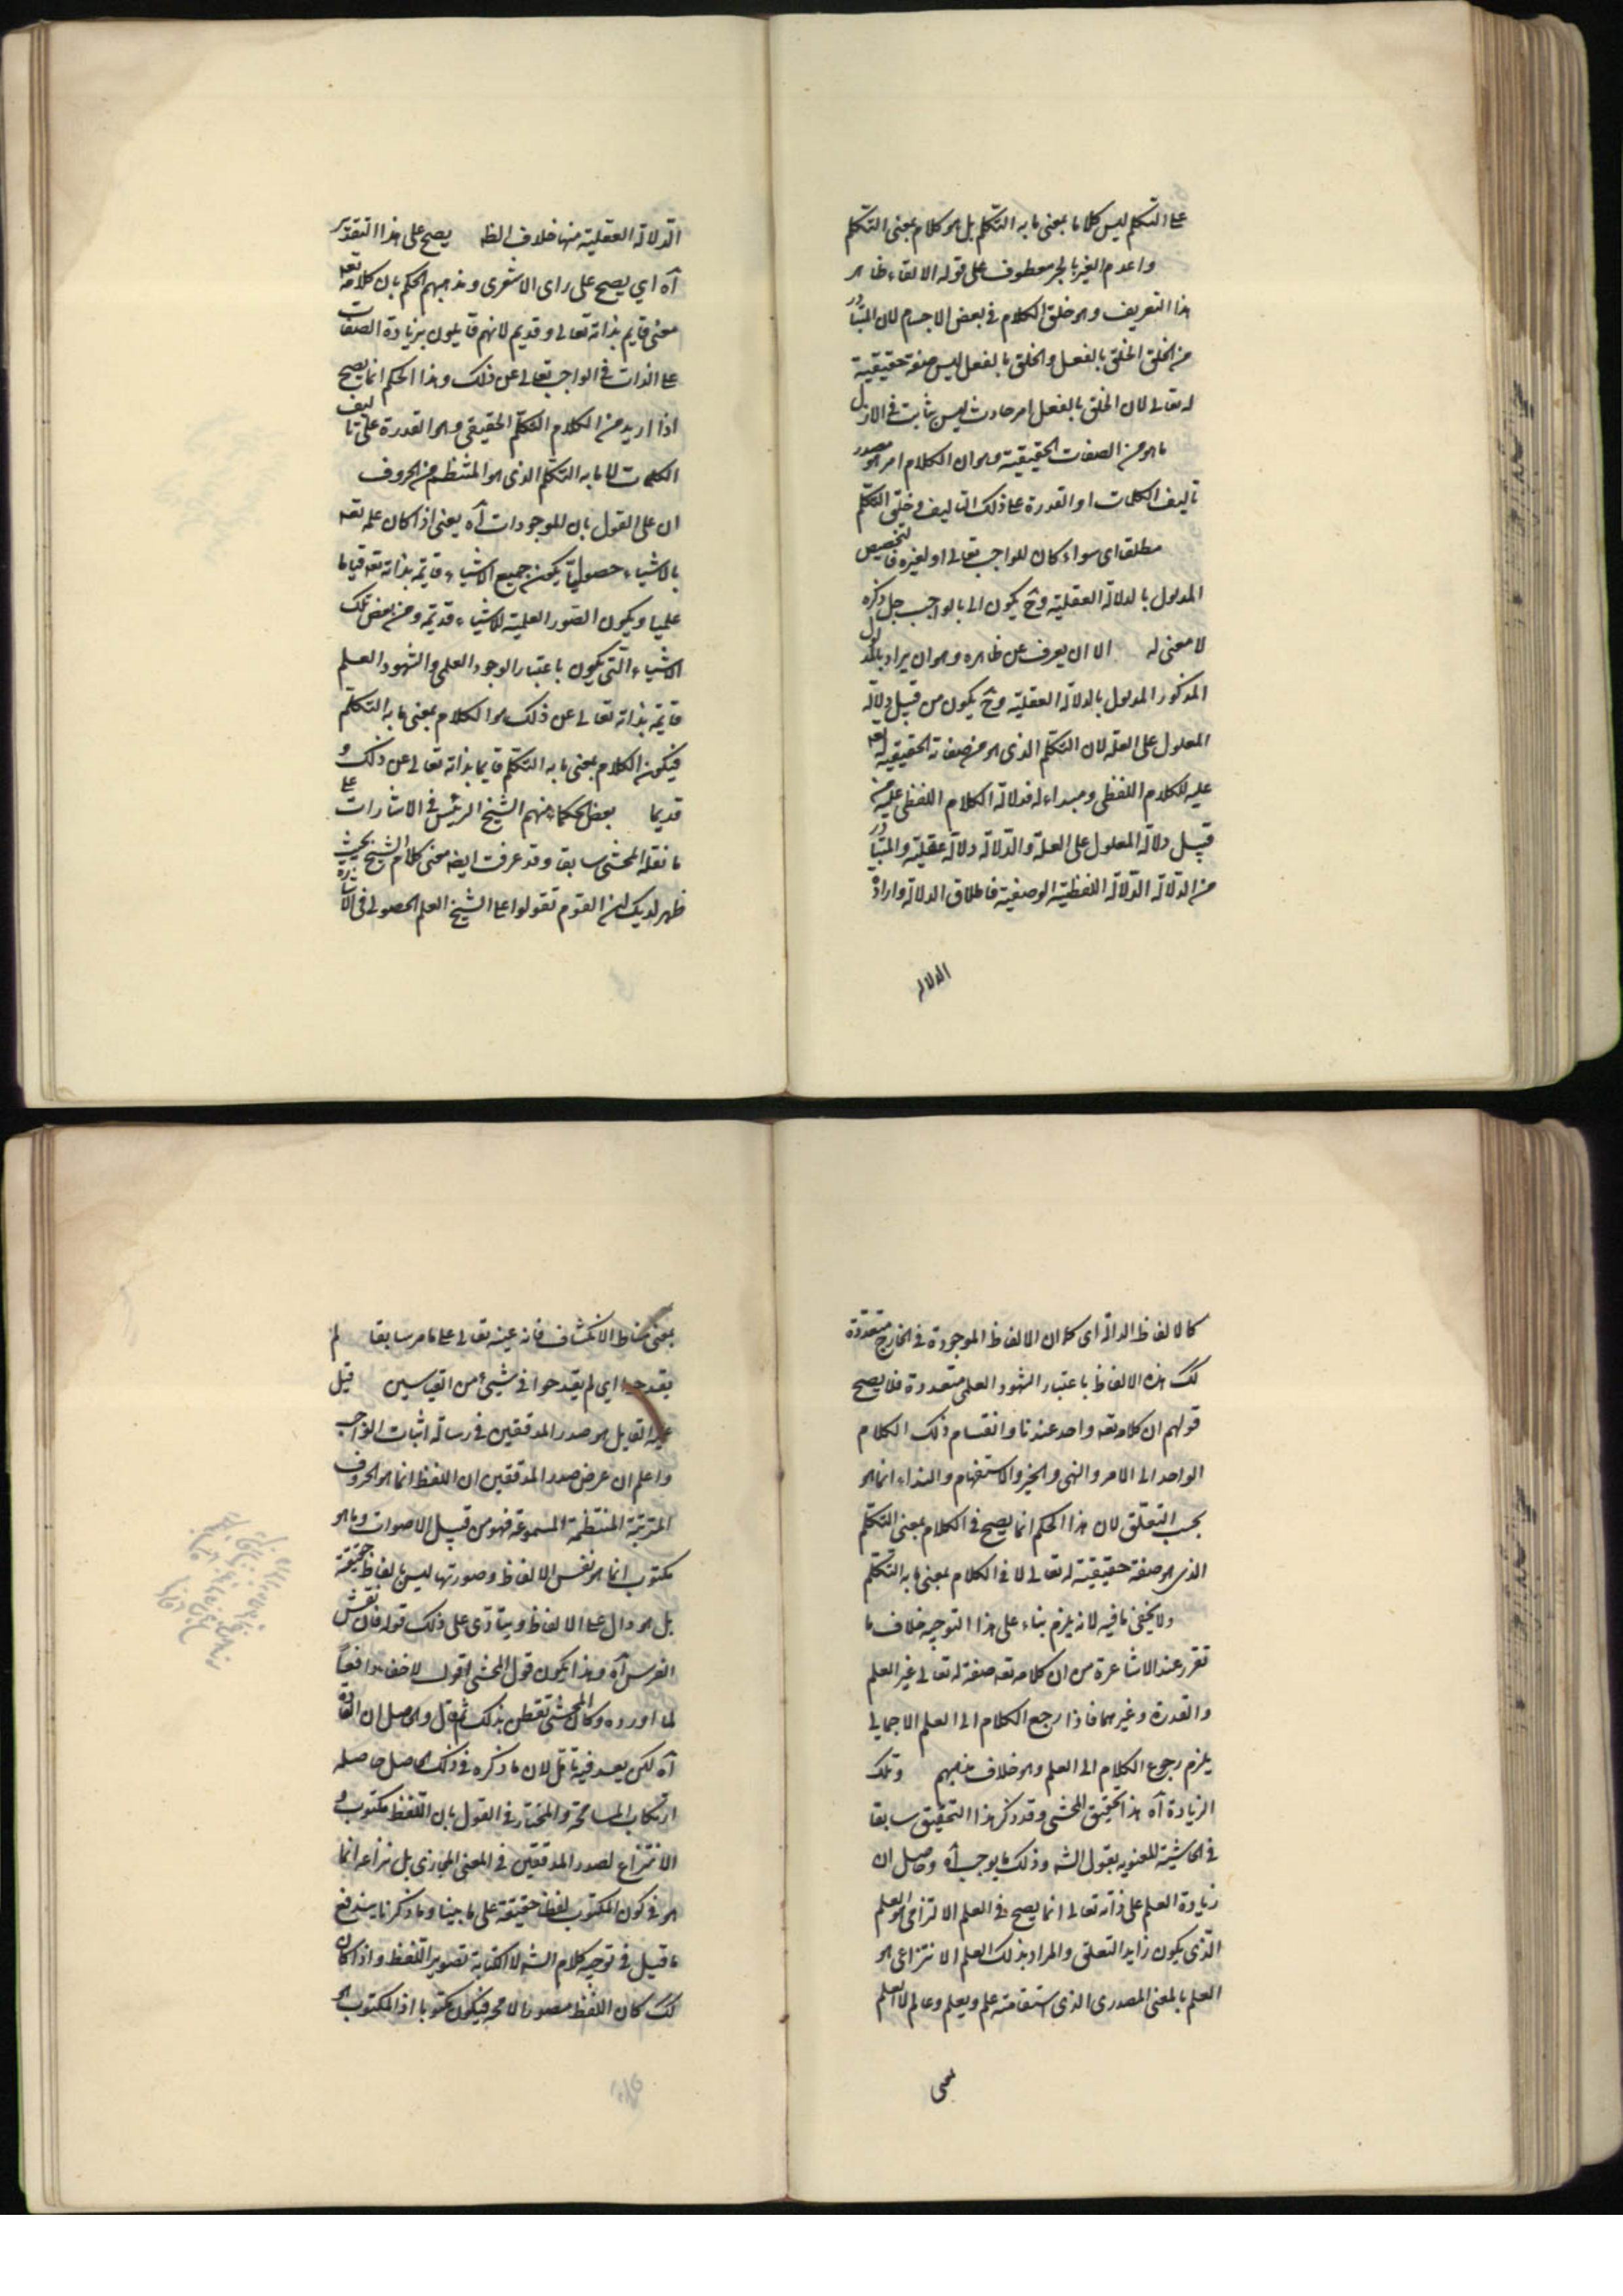 على التكلم ليس كلاما بمعنى ما به التكلم بل هو كلام بمعنى التكلم
واعدم الغير بالجر معطوف على قوله الالقاء ظاهر
هذا التعريف وهو خلق الكلام فى بعض الاجسام لان المتبادر
من الخلق الخلق بالفعل والخلق بالفعل ليس صفة حقيقية
له تعالى لان الخلق بالفعل امر حادث ليس بثابت فى الازل
ما هو من الصفات الحقيقية وهو ان الكلام امر هو مصدر
تاليف الكلمات او القدرة على ذلك التاليف وخلق التكلم
مطلقا اى سواء كان للواجب تعالى او لغيره فالتخصيص
المدلول بالدلالة العقلية وح يكون الا بالواجب جل ذكره
لا معنى له الا ان يعرف عن ظاهره وهو ان يراد بالمدلول
المذكور المدلول بالدلالة العقلية وح يكون من قبيل دلالة
المعلول على العلة لان التكلم الذى هو من صفاته الحقيقية تعه
عليه للكلام اللفظى ومبداء له فدلالة الكلام اللفظى عليه من
قبيل دلالة المعلول على العلة والدلالة دلالة عقلية والمتبادر
من الدلالة الدلالة اللفظية الوضعية فاطلاق الدلالة وارادة
الدلالة
الدلالة العقلية منها خلاف الظ يصح على هذا التقدير
آه اي يصح على راى الاشعرى ومذهبهم الحكم بان كلامه تعه
معنى قايم بذاته تعالى وقديم لانهم قايلون بزيادة الصفات
على الذات فى الواجب تعالى عن ذلك وهذا الحكم انما يصح
اذا اريد من الكلام التكلم الحقيقى وهو القدرة على تاليف
الكلمات لا ما به التكلم الذى هو المنتظم من الحروف
ان على القول بان للموجودات آه يعنى اذا كان علمه تعه
بالاشياء حصوليا يكون جميع الاشياء قايمة بذاته تعه قياما
علميا ويكون الصور العلمية للاشياء قديمة ومن بعض تلك
الاشياء التى يكون باعتبار الوجود العلمى والشهود العلم
قايمة بذاته تعالى عن ذلك هو الكلام بمعنى ما به التكلم
فيكون الكلام بمعنى ما به التكلم قايما بذاته تعالى عن ذلك و
قديما بعض الحكماء منهم الشيخ الرئيس فى الاشارات على
ما نقله المحشى سابقا وقد عرفت ايضه معنى كلام الشيخ بحيث
ظهر لديك ان القوم تقولوا على الشيخ العلم الحصولى فى الاشارة
كالالفاظ الدالة اى كما ان الالفاظ الموجودة فى الخارج متعددة
لك هذه الالفاظ باعتبار الشهود العلمى متعددة فلا يصح
قولهم ان كلامه تعه واحد عندنا وانقسام ذلك الكلام
الواحد الى الامر والنهى والخبر والاستفهام والنداء انما هو
بحسب التعلق لان هذا الحكم انما يصح فى الكلام بمعنى التكلم
الذى هو صفة حقيقية له تعالى لا فى الكلام بمعنى ما به التكلم
ولا يخفى ما فيه لانه يلزم بناء على هذا التوجيه خلاف ما
تقرر عند الاشاعرة من ان كلامه تعه صفة له تعالى غير العلم
والقدرة وغيرهما فاذا رجع الكلام الى العلم الاجمالى
يلزم رجوع الكلام الى العلم وهو خلاف مذهبهم وتلك
الزيادة آه هذا تحقيق المحشى وقد ذكر هذا التحقيق سابقا
فى الحاشية المعنونه بقول الشه وذلك ما يوجب آه وحاصل ان
زيادة العلم على ذاته تعالى انما يصح فى العلم الالتزامى هو العلم
الذى يكون زايد التعلق والمراد بذلك العلم الانتزاعى هو
العلم بالمعنى المصدرى الذى اشتقاقه علم ويعلم وعالم لا العلم
بمعنى
بمعنى مناط الانكشاف فانه عينه تعالى على ما مر سابقا لم
يقدحوا اى لم يقدحوا فى شيئ من القياسين قيل
عليه القايل هو صدر المدققين فى رسالة اثبات الواجب
واعلم ان عرض صدر المدققين ان اللفظ انما هو الحروف
المترتبة المنتظمة المسموعة فهو من قبيل الاصوات وما هو
مكتوب انما هو نقس الالفاظ وصورتها ليس بالفاظ حقيقة
بل هو دال على الالفاظ وينادى على ذلك قوله فان نقش
الفرس آه وبهذا يكون قول المحشى اقول لا خفاء دافعا
لما اورده وكان المحشى تفطن بذلك ثم قال وحاصل ان القا
آه لكن بعد فيه تامل لان ما ذكره فى ذلك الحاصل حاصله
ارتكاب المسامحة والمختار فى القول بان اللفظ مكتوب و
الانتزاع لصدر المدققين فى المعنى المجازى بل نزاعه انما
هو فى كون المكتوب لفظا حقيقة على ما بينا وما ذكرنا يندفع
ما قيل فى توجيه كلام الشه لا الكتابة تصوير اللفظ واذا كان
لك كان اللفظ مصورا لا محه فيكون مكتوبا اذ المكتوب هو